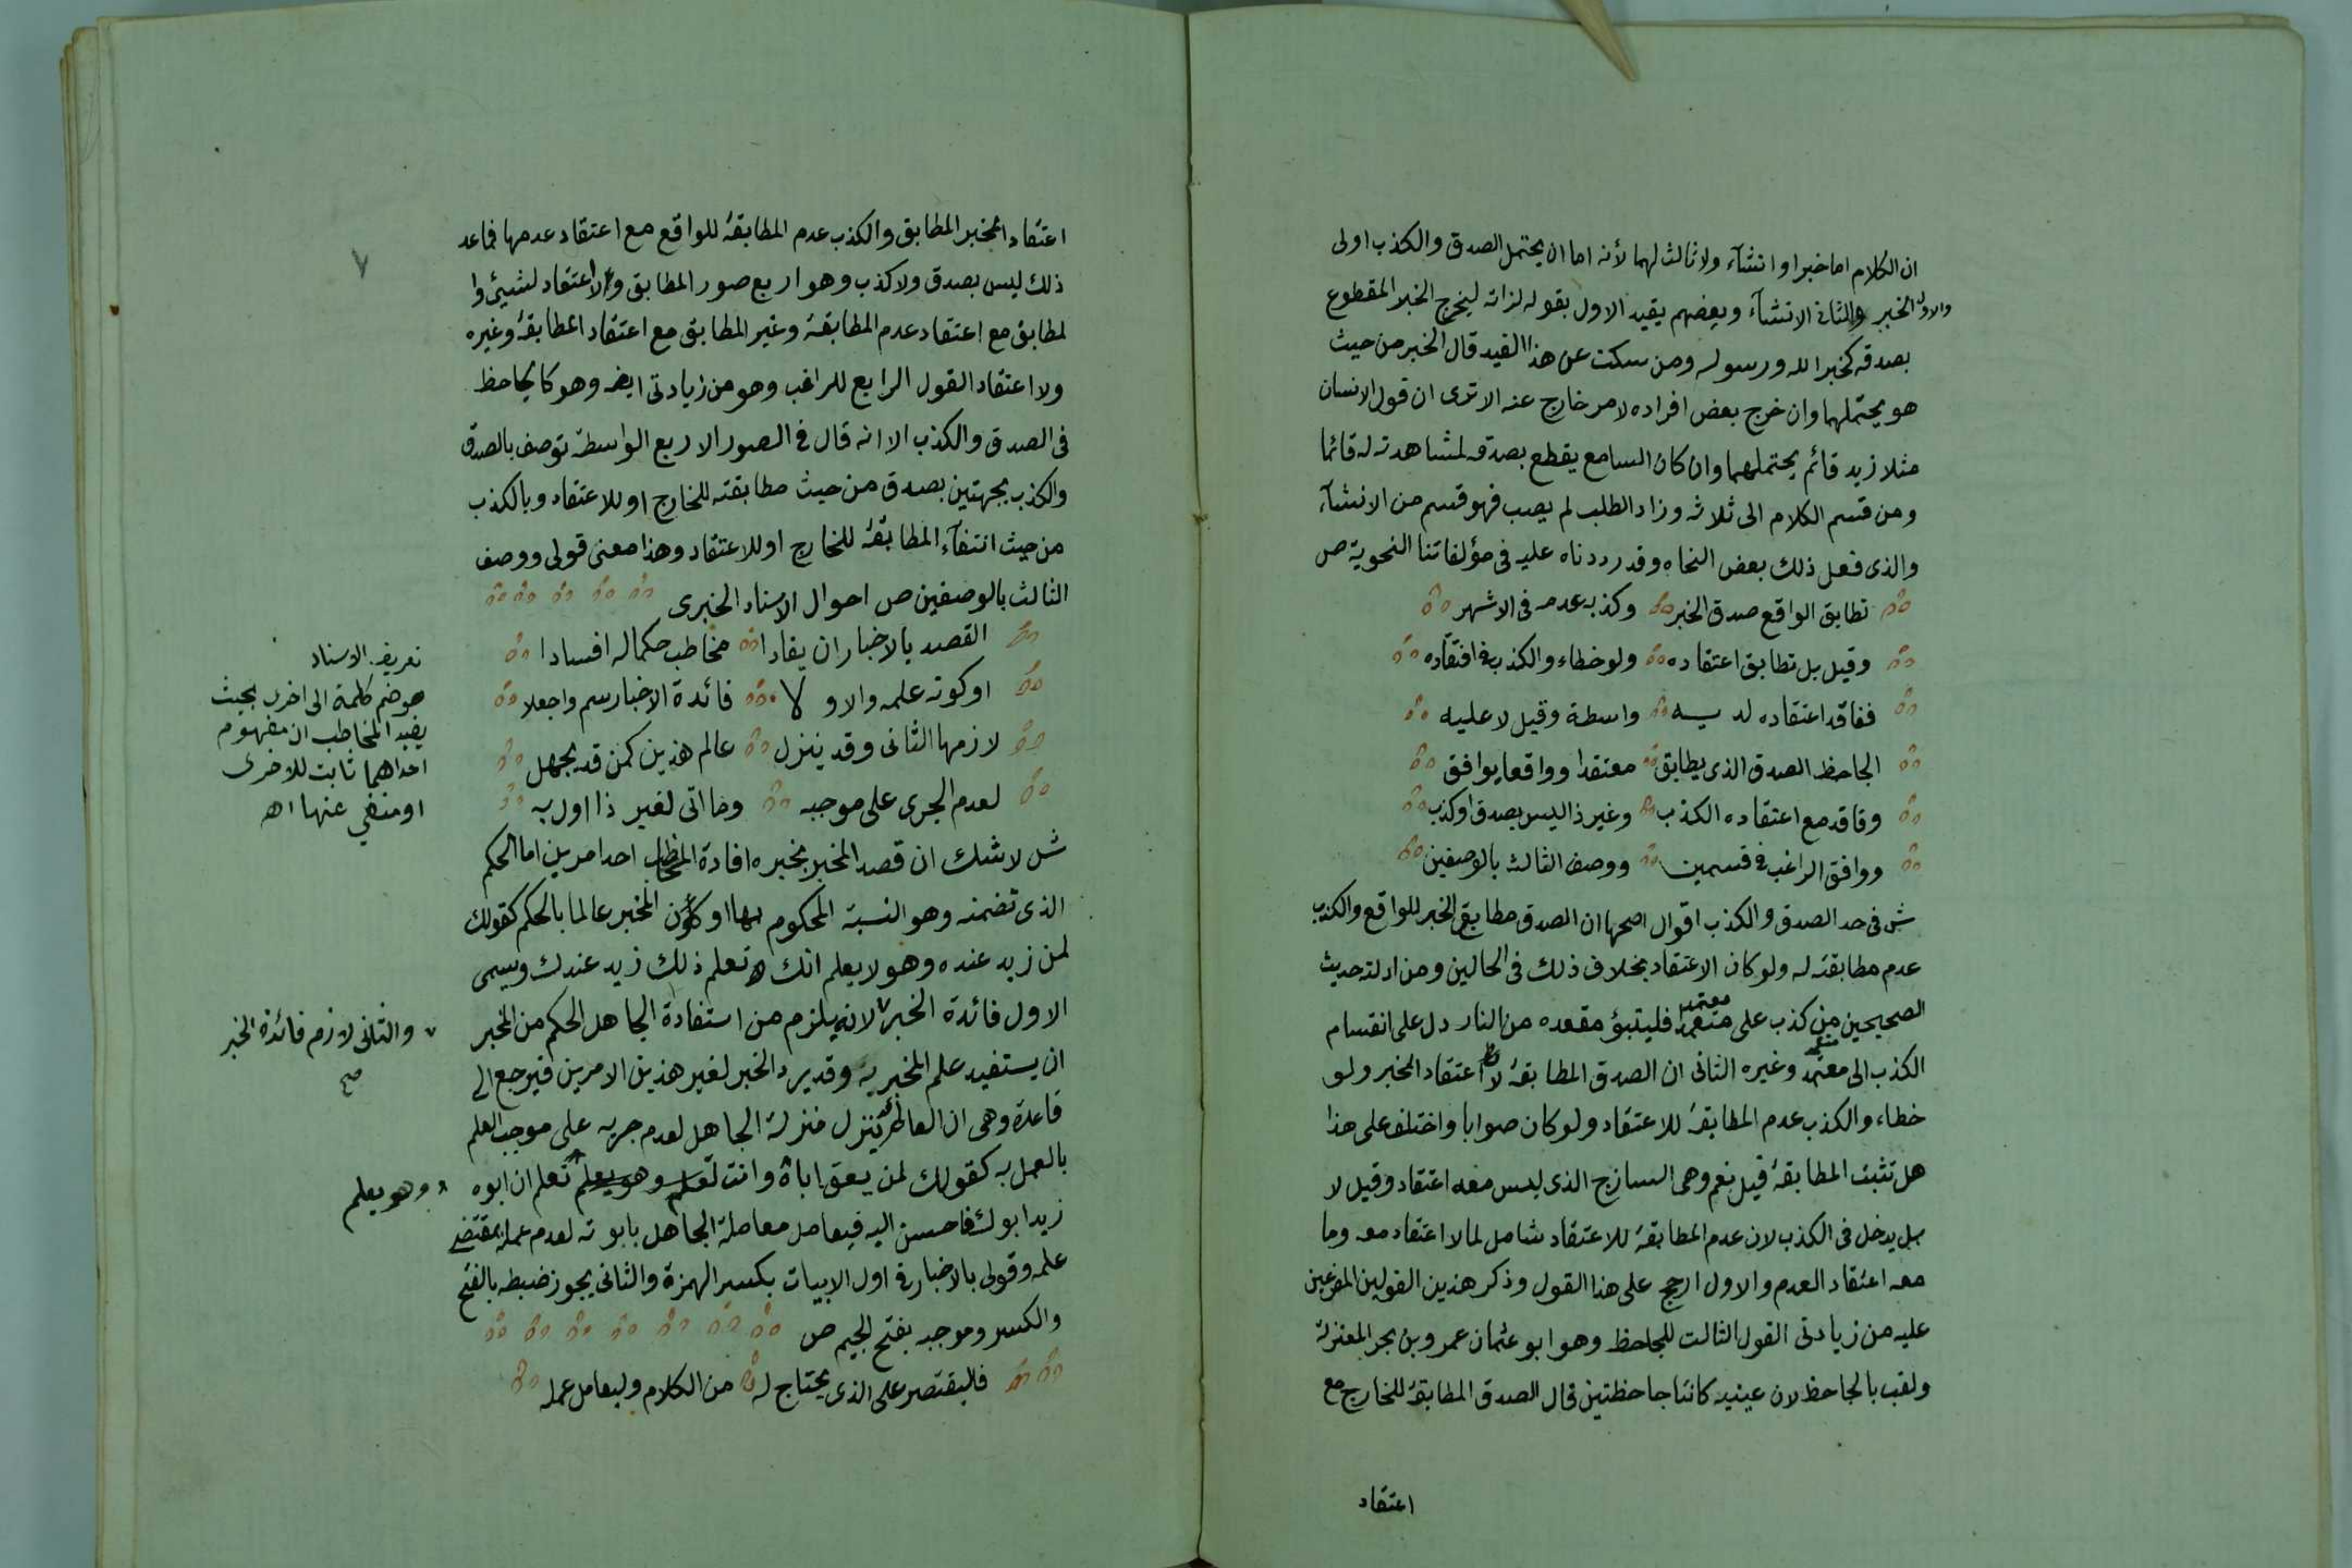 ان الكلام اما خبر او انشآء ولا ثالث لهما لأنه اما ان يحتمل الصدق والكذب اولى
والاول الخبر والثانى الانشآء وبعضهم يقيد الاول بقوله لذاته ليخرج الخبر المقطوع
بصدقه كخبر الله ورسوله ومن سكت عن هذا القيد قال الخبر من حيث
هو يحتملهما وان خرج بعض افراده لامر خارج عنه الا ترى ان قول الانسان
مثلا زيد قائم يحتملهما وان كان السامع يقطع بصدقه لمشاهدته له قائما
ومن قسم الكلام الى ثلاثه وزاد الطلب لم يصب فهو قسم من الانشآء
والذى فعل ذلك بعض النحاه وقد رددناه عليه فى مؤلفاتنا النحوية ص
تطابق الواقع صدق الخبر وكذبه عدمه فى الاشهر
وقيل بل تطابق اعتقاده ولو خطاء والكذب فى افتقاده
ففاقد اعتقاده لديه واسطة وقيل لا عليه
الجاحظ الصدق الذى يطابق معتقدا وواقعا يوافق
وفاقد مع اعتقاده الكذب وغير ذا ليس بصدق او كذب
ووافق الراغب فى قسمين ووصف الثالث بالوصفين
ش فى حد الصدق والكذب اقوال اصحها ان الصدق مطابقة الخبر للواقع والكذب
عدم مطابقته له ولو كان الاعتقاد بخلاف ذلك فى الحالين ومن ادلته حديث
الصحيحين من كذب على متعمدا فليتبؤ مقعده من النار دل على انقسام
الكذب الى متعمد وغيره الثانى ان الصدق المطابقة لاعتقاد المخبر ولو
خطاء والكذب عدم المطابقة للاعتقاد ولو كان صوابا واختلف على هذا
هل تثبت المطابقة قيل نعم وهى الساذج الذى ليس معه اعتقاد وقيل لا
بل يدخل فى الكذب لان عدم المطابقة للاعتقاد شامل لما لا اعتقاد معه وما
معه اعتقاد العدم والاول ارجح على هذا القول وذكر هذين القولين المفرعين
عليه من زيادتى القول الثالث للجاحظ وهو ابو عثمان عمرو بن بحر المعتزلى
ولقب بالجاحظ لان عينيه كانتا جاحظتين قال الصدق المطابقة للخارج مع
اعتقاد
٧
اعتقاد المخبر المطابق والكذب عدم المطابقة للواقع مع اعتقاد عدمها فماعد
ذلك ليس بصدق ولا كذب وهو اربع صور المطابق ولا اعتقاد لشيئ وا
لمطابق مع اعتقاد عدم المطابقة وغير المطابق مع اعتقاد المطابقة وغيره
ولا اعتقاد القول الرابع للراغب وهو من زيادتى ايضا وهو كالجاحظ
فى الصدق والكذب الا انه قال فى الصور الاربع الواسطة توصف بالصدق
والكذب بجهتين بصدق من حيث مطابقته للخارج او للاعتقاد وبالكذب
من حيث انتفآء المطابقة للخارج او للاعتقاد وهذا معنى قولى ووصف
الثالث بالوصفين ص احوال الاسناد الخبرى
القصد بالاخبار ان يفادا مخاطب حكما له افسادا
او كونه علمه والاولا فائدة الاخبار سم واجعلا
لازمها الثانى وقد ينزل عالم هذين كمن قد يجهل
لعدم الجرى على موجبه وما اتى لغير ذا اول به
تعريف الاسناد
هو ضم كلمة الى اخرى بحيث
يفيد المخاطب ان مفهوم
احداهما ثابت للاخرى
او منفي عنها اه
ش لا شك ان قصد المخبر بخبره افادة المخاطب احد امرين اما الحكم
الذى تضمنه وهو النسبة المحكوم بها او كون المخبر عالما بالحكم كقولك
لمن زيد عنده وهو لا يعلم انك تعلم ذلك زيد عندك ويسمى
الاول فائدة الخبر لانه يلزم من استفادة الجاهل الحكم من المخبر
والثانى لازم فائدة الخبر
صح
ان يستفيد علم المخبر به وقد يرد الخبر لغير هذين الامرين فيرجع الى
قاعدة وهى ان العالم ينزل منزلة الجاهل لعدم جريه على موجب العلم
بالعمل به كقولك لمن يعق اباه وانت تعلم وهو يعلم تعلم ان ابوه
وهو يعلم
زيد ابوك فاحسن اليه فيعامل معاملة الجاهل بابوته لعدم عمله بمقتضى
علمه وقولى بالاخبار فى اول الابيات بكسر الهمزة والثانى يجوز ضبطه بالفتح
والكسر وموجبه بفتح الجيم ص
فليقتصر على الذى يحتاج له من الكلام وليعامل عمله